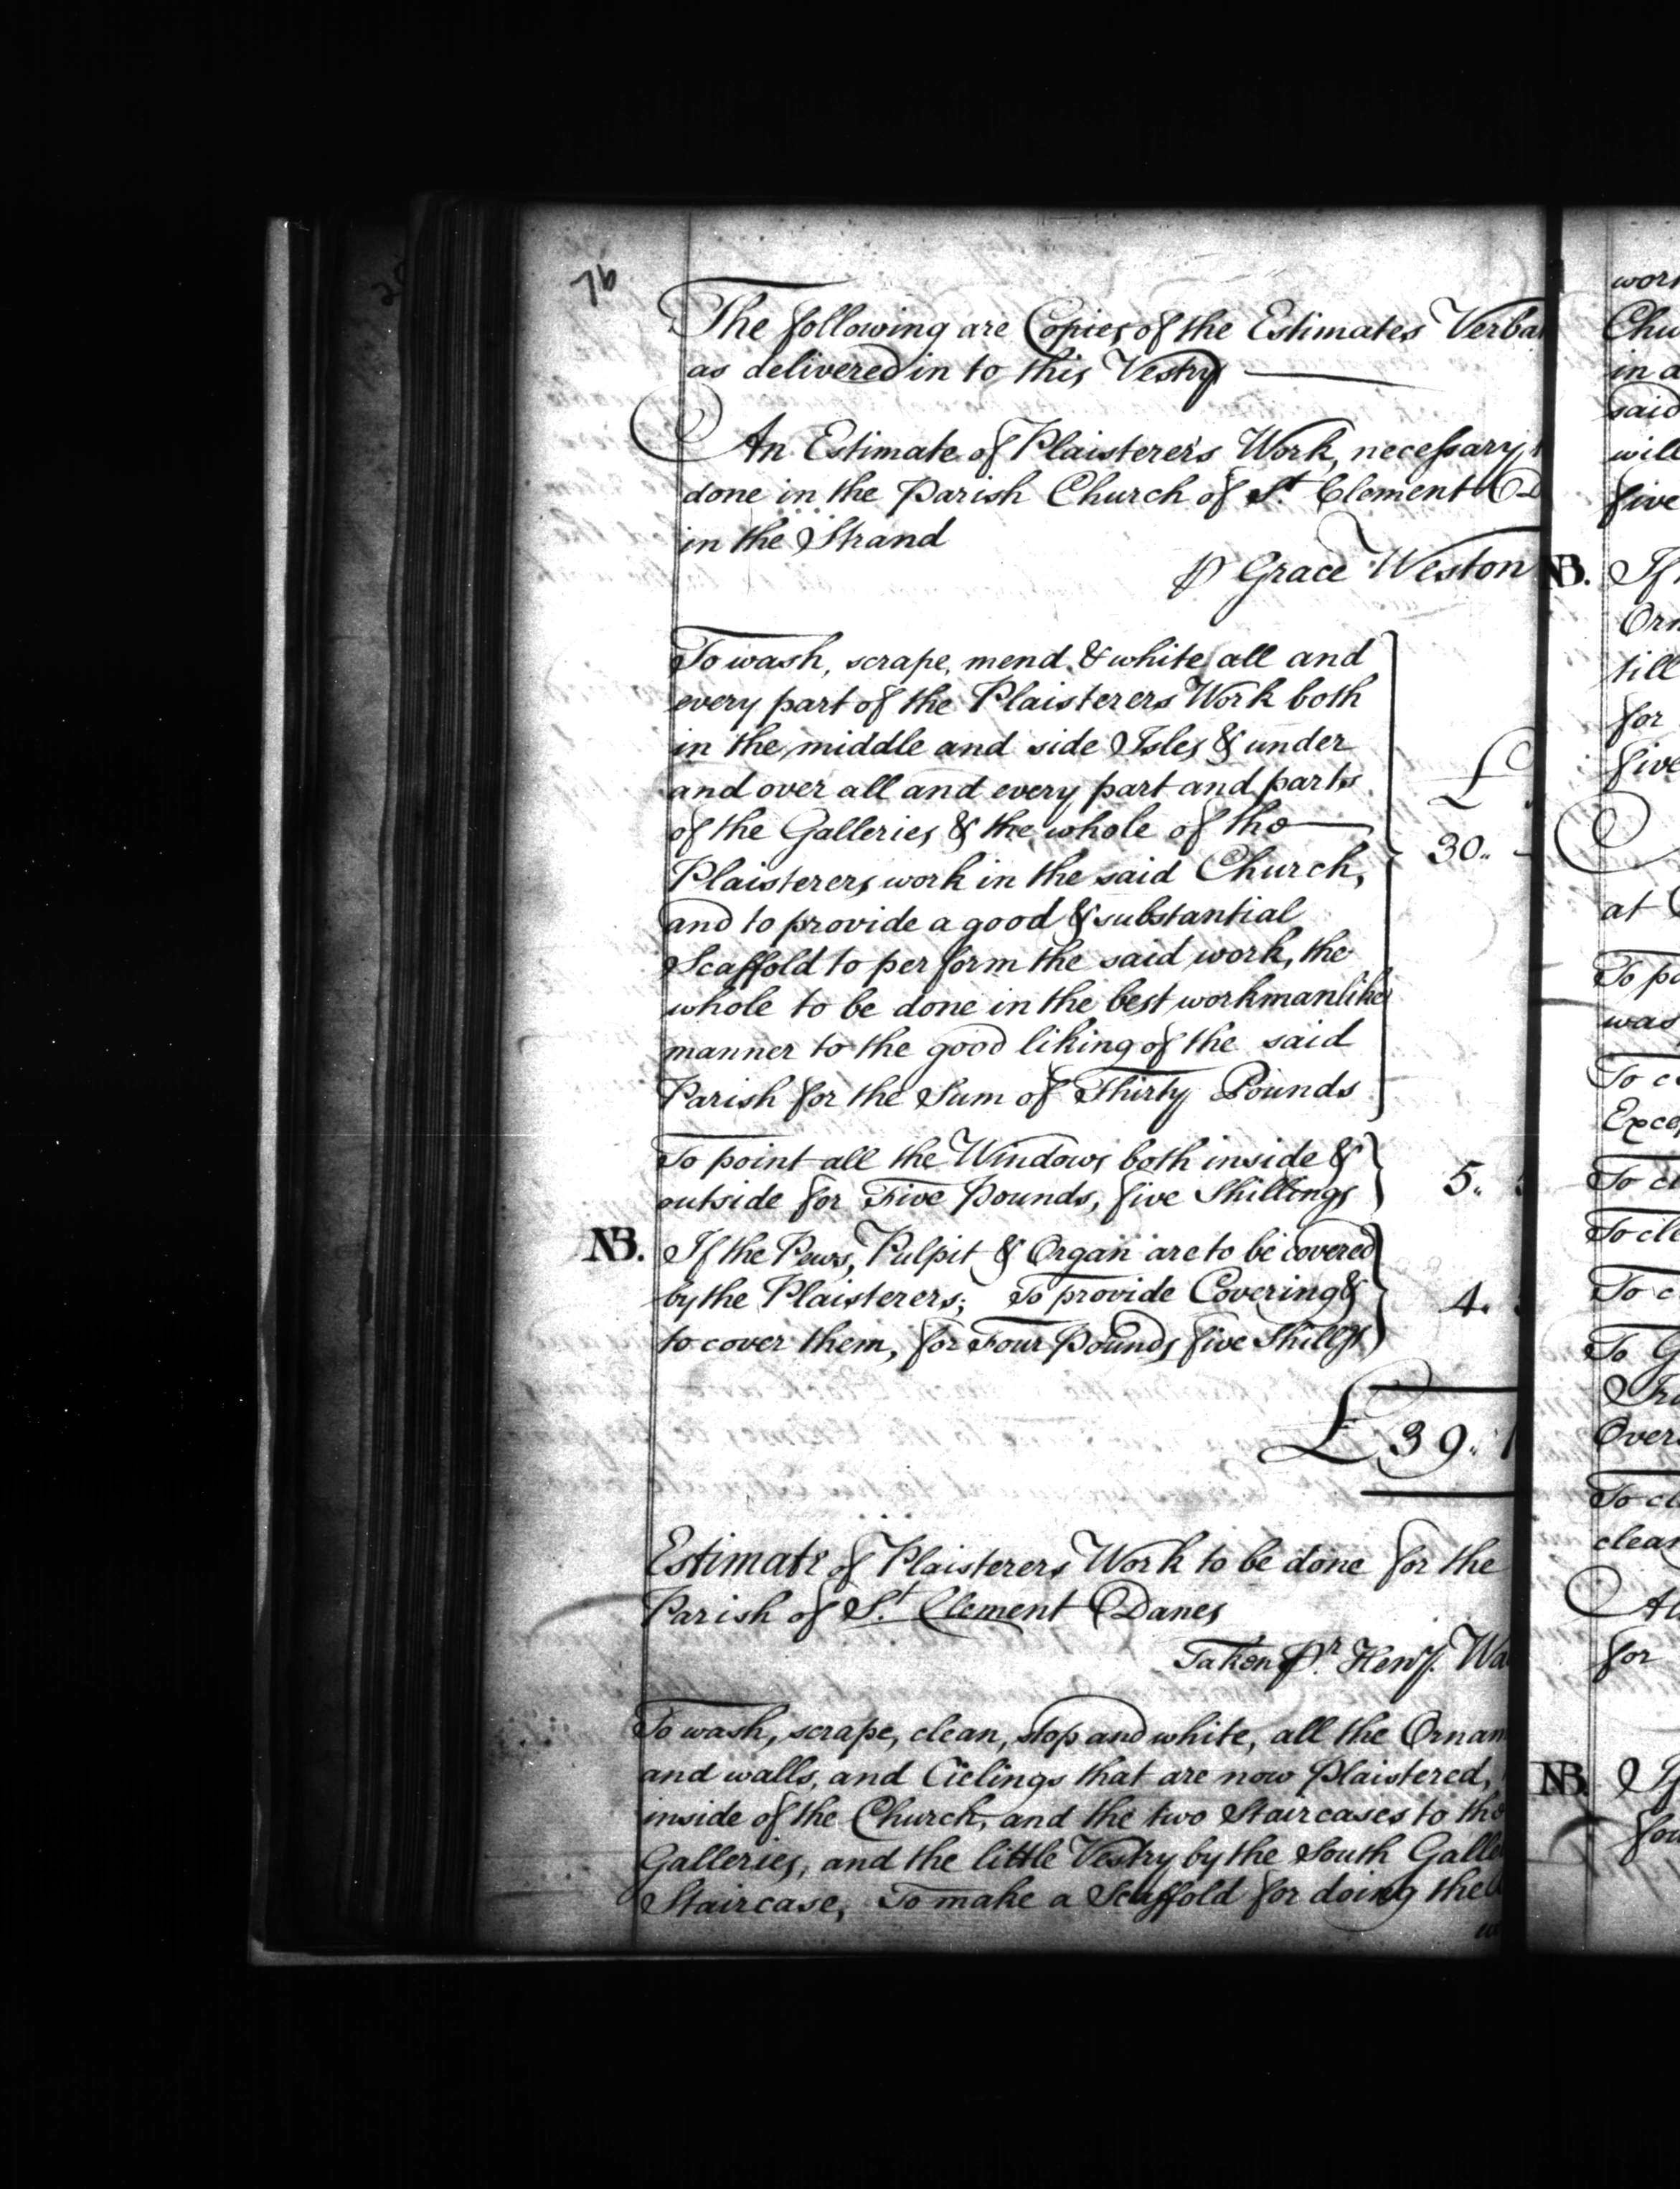 76
The following are Copies of the Estimates Verba
as delivered in to this Vestry
An Estimate of Plaisterer's Work, necessary
done in the Parish Church of St. Clement D
in the Strand
P Grace Weston
To wash, scrape, mend & white all and
every part of the Plaisterers Work both
in the middle and side Isles & under
and over all and every part and parts
of the Galleries & the whole of the
£
30.. -
Plaisterers work in the said Church,
and to provide a good & substantial
Scaffold to perform the said work, the
whole to be done in the best workmanlike
manner to the good liking of the said
Parish for the Sum of Thirty Pounds
To point all the Windows both inside &
outside for Five Pounds, five Shillings
5..
NB. If the Pews, Pulpit & Organ are to be covered
by the Plaisterers; To provide Covering &
to cover them, for Four Pounds five Shillgs
4.
£ 39.. 1
Estimate of Plaisterers Work to be done for the
Parish of St. Clement Danes
Taken Pr. Heny. Wa
To wash, scrape, clean, stop and white, all the Ornam
and walls, and Cielings that are now Plaistered,
inside of the Church, and the two Staircases to the
Galleries, and the little Vestry by the South Galle
Staircase, To make a Scaffold for doing the
wor
Chu
in a
said
will
five
NB. If
Orn
till
for
five
at
To pa
was
To c
Exce
To cl
To cle
To c
To G
Fra
Over
To cl
clean
for
NB. If
fou